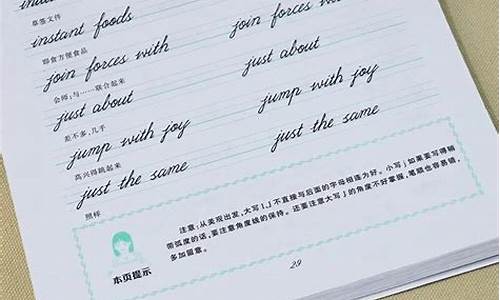 草签文件
instant foods
即食方便食品
join forces with
join forces with
会师;与……联合起来
just about
just about
差不多,几乎
jump with joy
jump with joy
高兴得跳起来
just the same
just the same
照样
注意:从美观出发,大写I、J不直接与后面的字母相连为好。小写j如果要写得稍
需弧度的话,要注意角度线的保持。还要注意大写J的角度不好掌握,笔顺也容易错,
多加留意。
本页提示
29